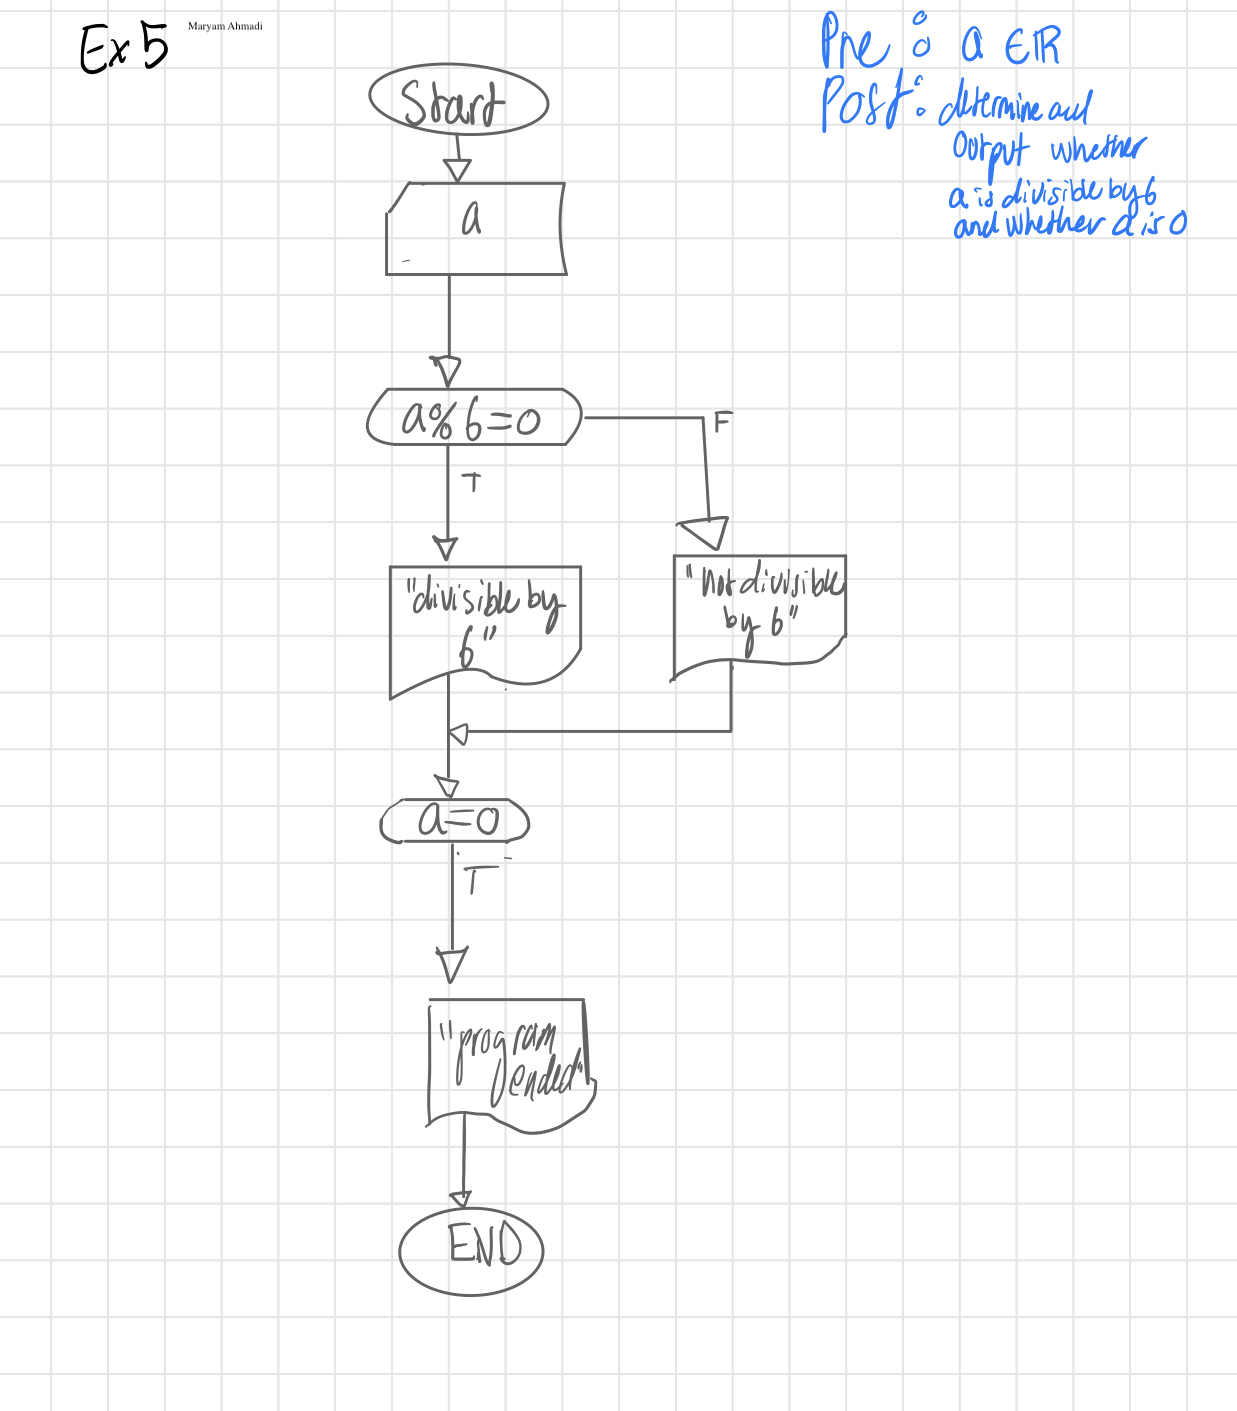 Ex 5
Maryam Ahmadi
Pre : a ∈ ℝ
Post: determine and
Output whether
a is divisible by 6
and whether a is 0
Start
a
a%6=0
F
T
"divisible by
6"
"not divisible
by 6"
a=0
T
"program
ended"
END